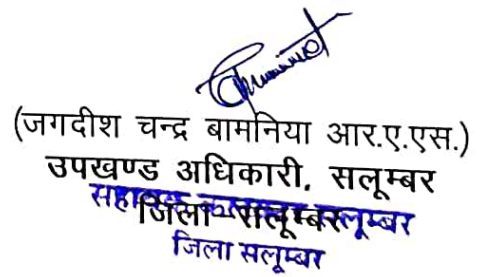 (जगदीश चन्द्र बामनिया आर.ए.एस.)
उपखण्ड अधिकारी, सलूम्बर
जिला सलूम्बर
सलूम्बर
जिला सलूम्बर